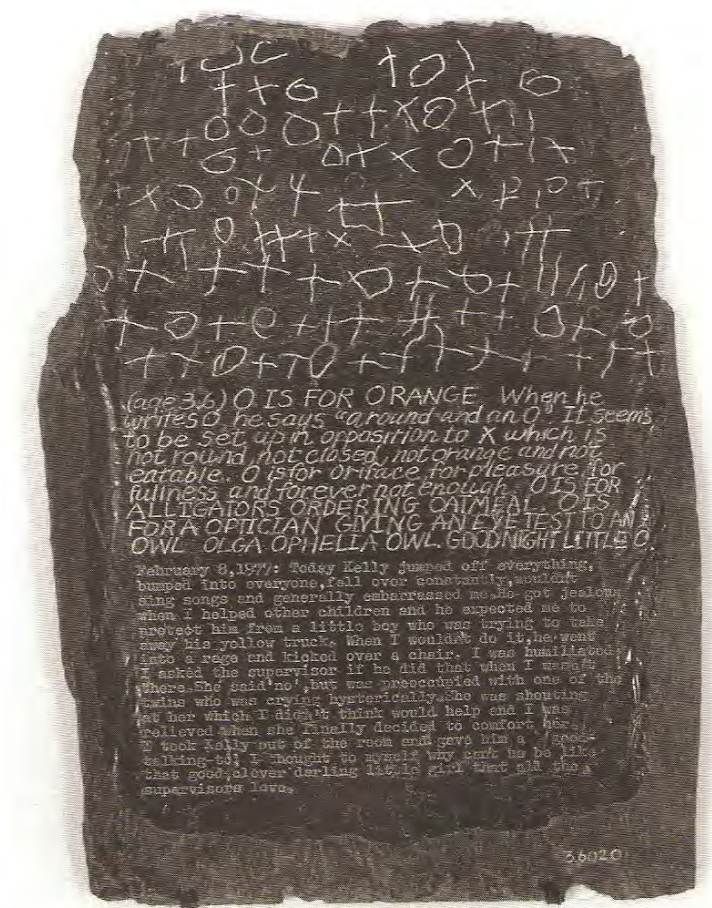 (age 3,6) O IS FOR ORANGE. When he
writes O, he says "around and an O" It seems
to be set up in opposition to X which is
not round, not closed, not orange and not
eatable. O is for oriface for pleasure, for
fullness and forever not enough. O IS FOR
ALLIGATORS ORDERING OATMEAL. O IS
FOR A OPTICIAN GIVING AN EYE TEST TO AN
OWL OLGA OPHELIA OWL. GOODNIGHT LITTLE O.
February 8,1977: Today Kelly jumped off everything,
bumped into everyone,fell over constantly,wouldn't
sing songs and generally embarrassed me.He got jealous
when I helped other children and he expected me to
protect him from a little boy who was trying to take
away his yellow truck. When I wouldn't do it,he went
into a rage and kicked over a chair. I was humiliated.
I asked the supervisor if he did that when I wasn't
there.She said'no',but was preoccupied with one of the
twins who was crying hysterically.She was shouting
at her which I didn't think would help and I was
relieved when she finally decided to comfort her.
I took Kelly out of the room and gave him a 'good-
talking-to'. I thought to myself why can't he be like
that good,clever darling little girl that all the
supervisors love.
3.602O